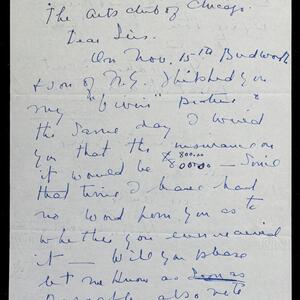 The Arts Club of Chicago.
Dear Sirs.
On Nov. 15th Budworth
& son of N.Y. shipped you
my "Twins" Picture &
the same day I wired
you that the insurance on
it would be $800.00 — Since
that time I have had
no word from you as to
whether you ever received
it — Will you please
let me know as soon as
possible also